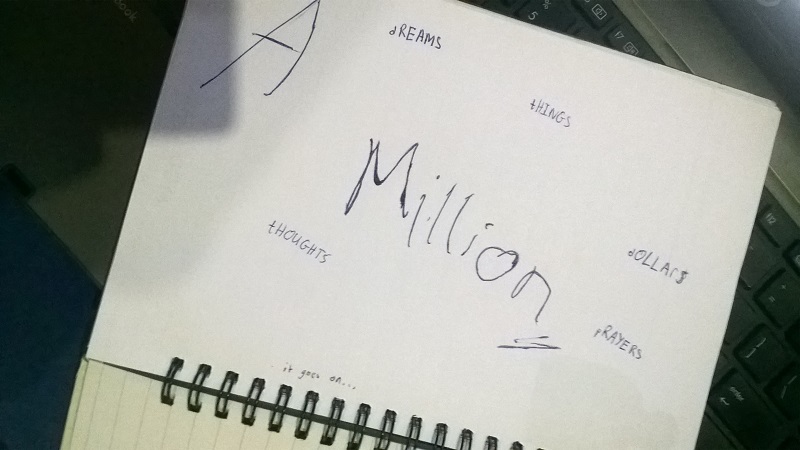 A
dREAMS
tHINGS
Million
tHOUGHTS
dOLLAR$
pRAYERS
it goes on...